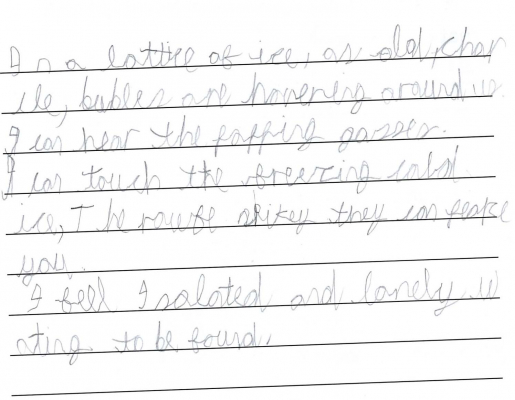 In a lattice of ice, as old, char
ile, bubles are hovering around us
I can hear the popping gasses.
I can touch the freezing cold
ice, The spikey they can
you.
I feel Isalated and lonely w
ating to be found.